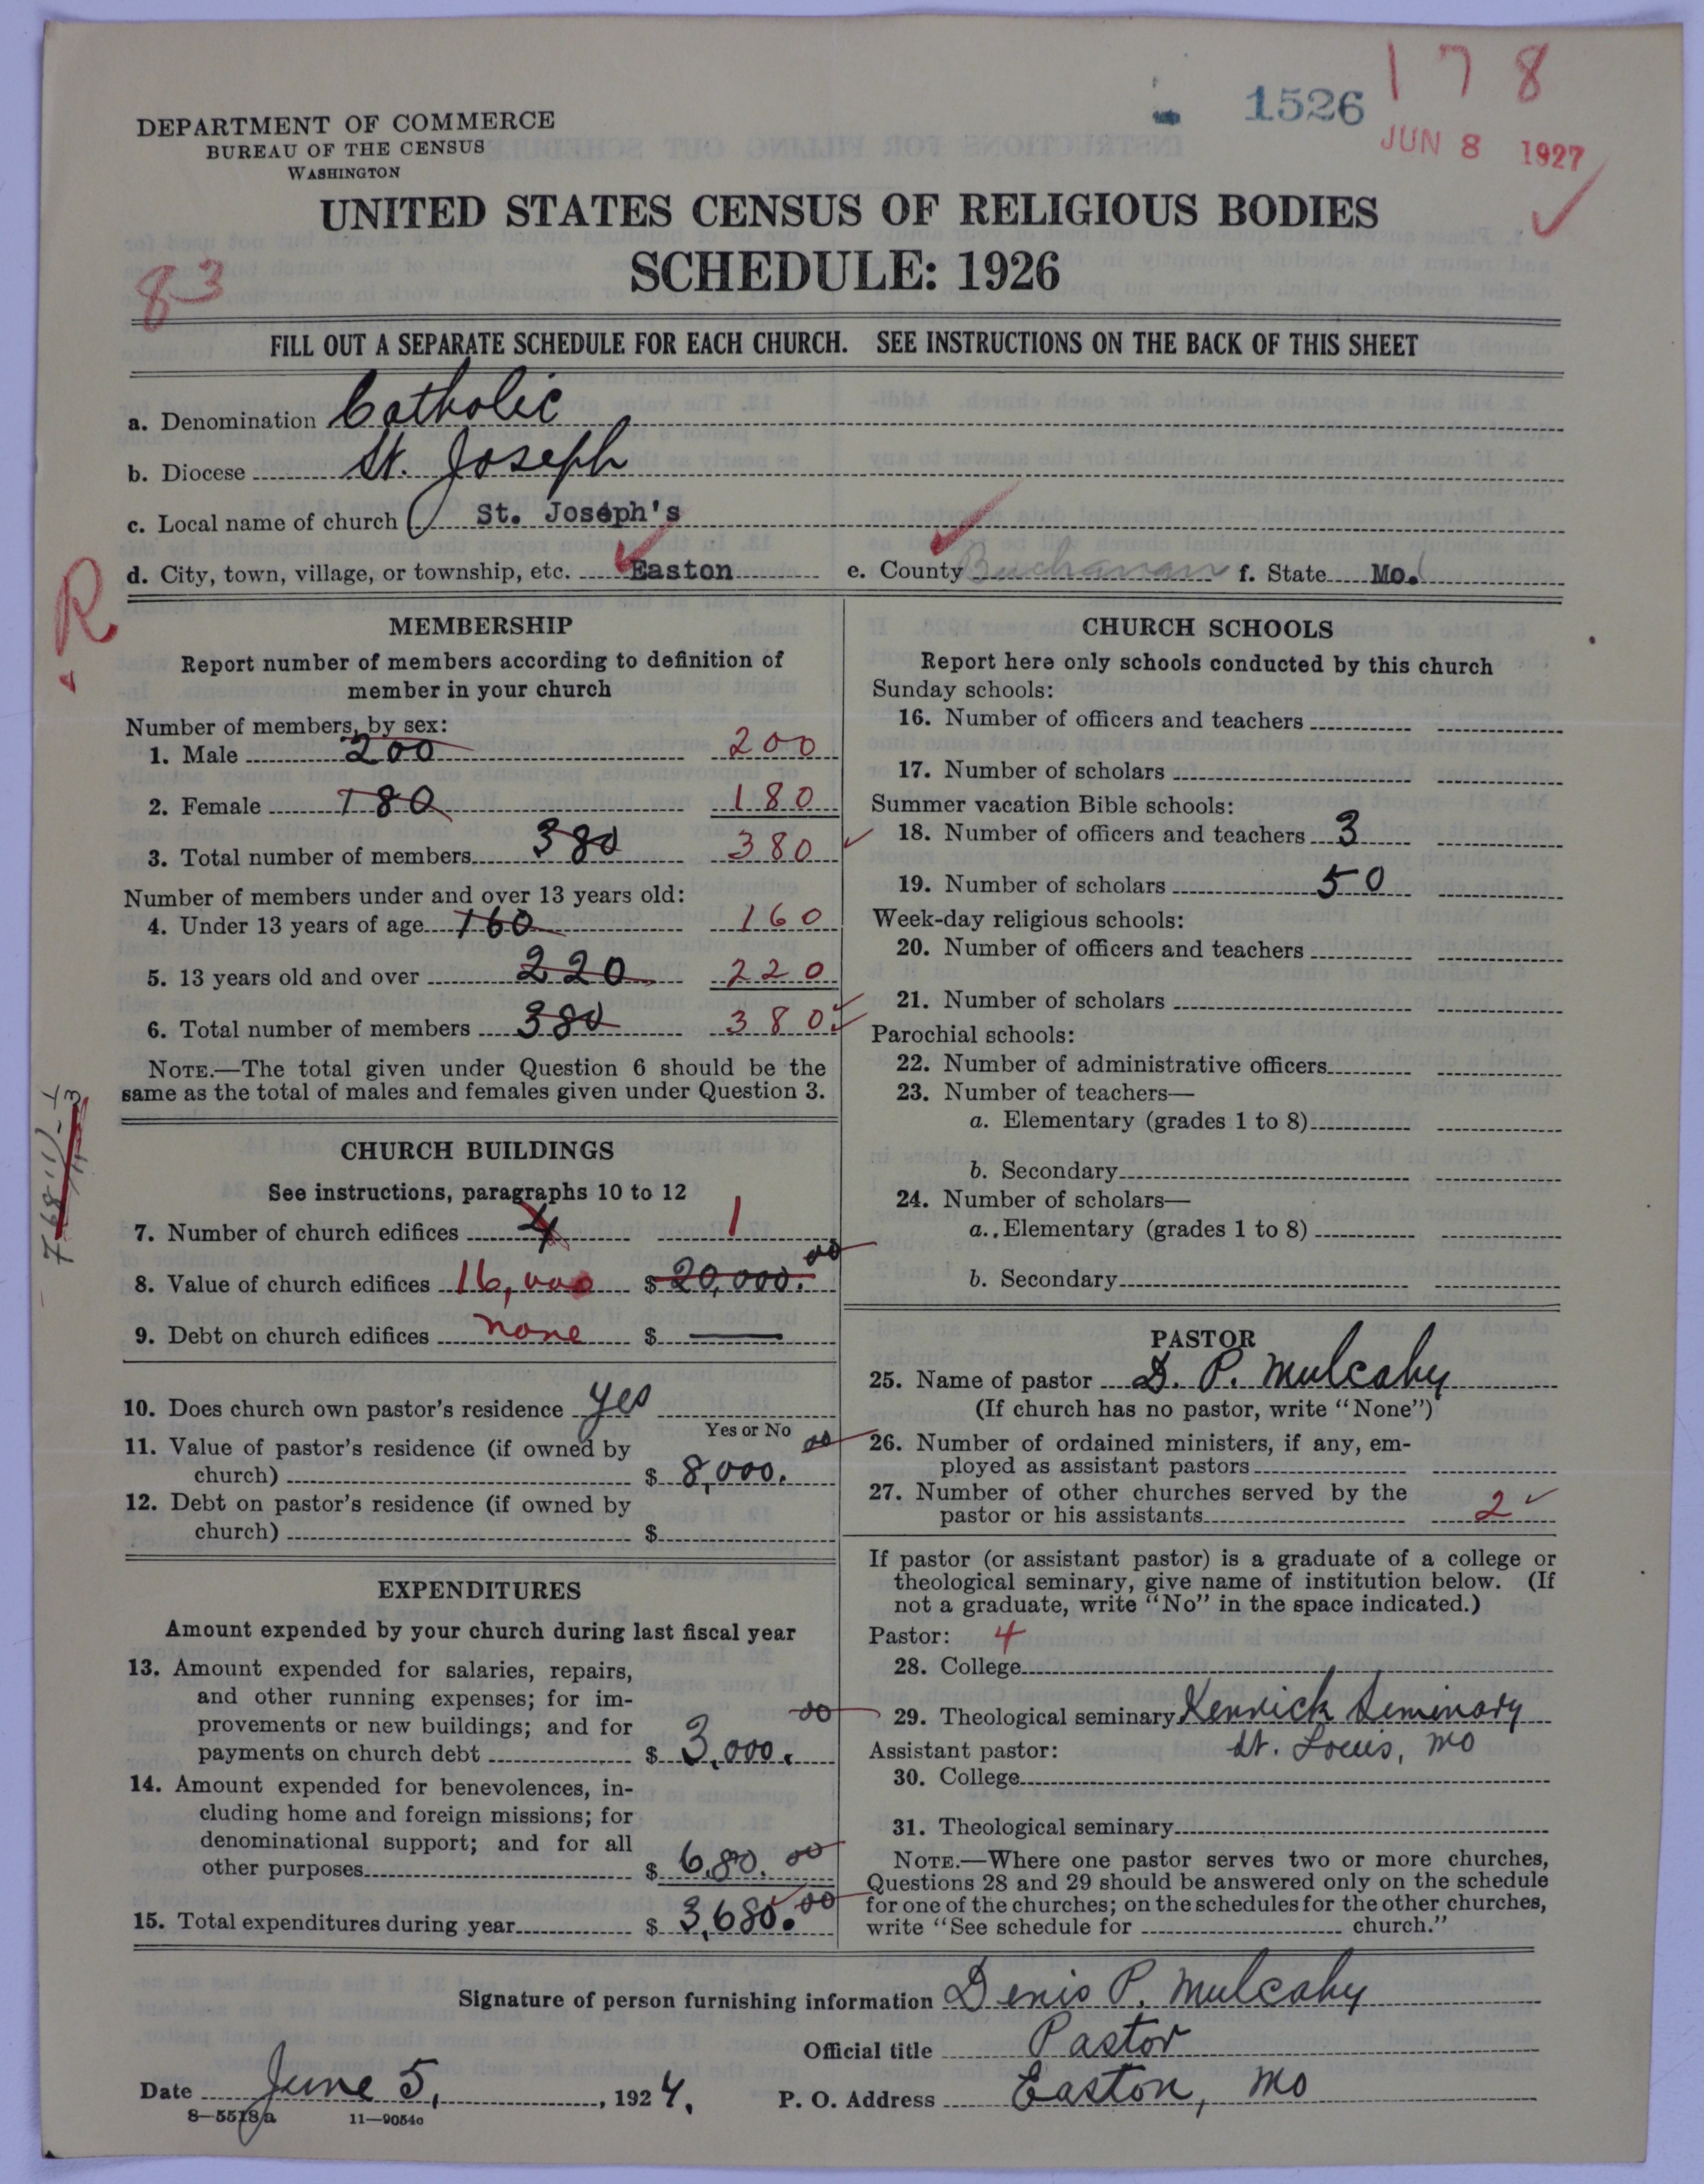 1526
178
JUN 8 1927
DEPARTMENT OF COMMERCE
BUREAU OF THE CENSUS
WASHINGTON
UNITED STATES CENSUS OF RELIGIOUS BODIES
SCHEDULE: 1926
83
FILL OUT A SEPARATE SCHEDULE FOR EACH CHURCH. SEE INSTRUCTIONS ON THE BACK OF THIS SHEET
a. Denomination Catholic
b. Diocese St. Joseph
c. Local name of church St. Joseph's
d. City, town, village, or township, etc. Easton e. County Buchanan f. State Mo.
R
MEMBERSHIP
Report number of members according to definition of
member in your church
Number of members, by sex:
1. Male 200 200
2. Female 180 180
3. Total number of members 380 380
Number of members under and over 13 years old:
4. Under 13 years of age 160 160
5. 13 years old and over 220 220
6. Total number of members 380 380
NOTE.—The total given under Question 6 should be the
same as the total of males and females given under Question 3.
CHURCH BUILDINGS
See instructions, paragraphs 10 to 12
7. Number of church edifices 4 1
8. Value of church edifices 16,000 $ 20,000.00
9. Debt on church edifices none $ —
10. Does church own pastor's residence yes
Yes or No
11. Value of pastor's residence (if owned by
church) $ 8,000.00
12. Debt on pastor's residence (if owned by
church) $
EXPENDITURES
Amount expended by your church during last fiscal year
13. Amount expended for salaries, repairs,
and other running expenses; for im-
provements or new buildings; and for
payments on church debt $ 3,000.00
14. Amount expended for benevolences, in-
cluding home and foreign missions; for
denominational support; and for all
other purposes $ 680.00
15. Total expenditures during year $ 3,680.00
CHURCH SCHOOLS
Report here only schools conducted by this church
Sunday schools:
16. Number of officers and teachers
17. Number of scholars
Summer vacation Bible schools:
18. Number of officers and teachers 3
19. Number of scholars 50
Week-day religious schools:
20. Number of officers and teachers
21. Number of scholars
Parochial schools:
22. Number of administrative officers
23. Number of teachers—
a. Elementary (grades 1 to 8)
b. Secondary
24. Number of scholars—
a. Elementary (grades 1 to 8)
b. Secondary
PASTOR
25. Name of pastor D. P. Mulcahy
(If church has no pastor, write "None")
26. Number of ordained ministers, if any, em-
ployed as assistant pastors
27. Number of other churches served by the
pastor or his assistants 2
If pastor (or assistant pastor) is a graduate of a college or
theological seminary, give name of institution below. (If
not a graduate, write "No" in the space indicated.)
Pastor: 4
28. College
29. Theological seminary Kenrick Seminary
Assistant pastor: St. Louis, Mo
30. College
31. Theological seminary
NOTE.—Where one pastor serves two or more churches,
Questions 28 and 29 should be answered only on the schedule
for one of the churches; on the schedules for the other churches,
write "See schedule for church."
Signature of person furnishing information Denis P. Mulcahy
Official title Pastor
Date June 5, 1924. P. O. Address Easton, Mo
8—5518a 11—9054c